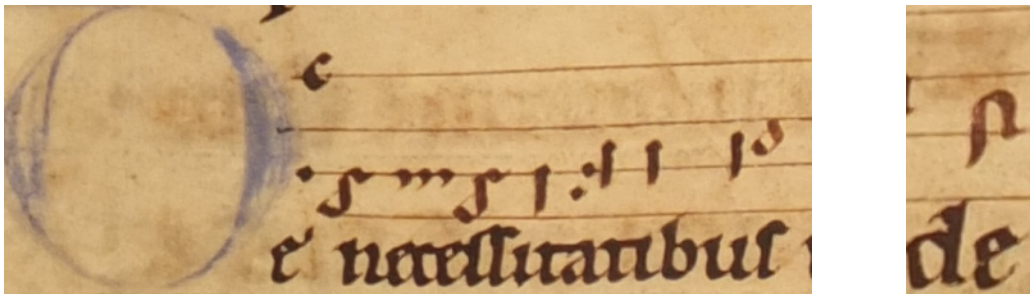 De necessitatibus
de